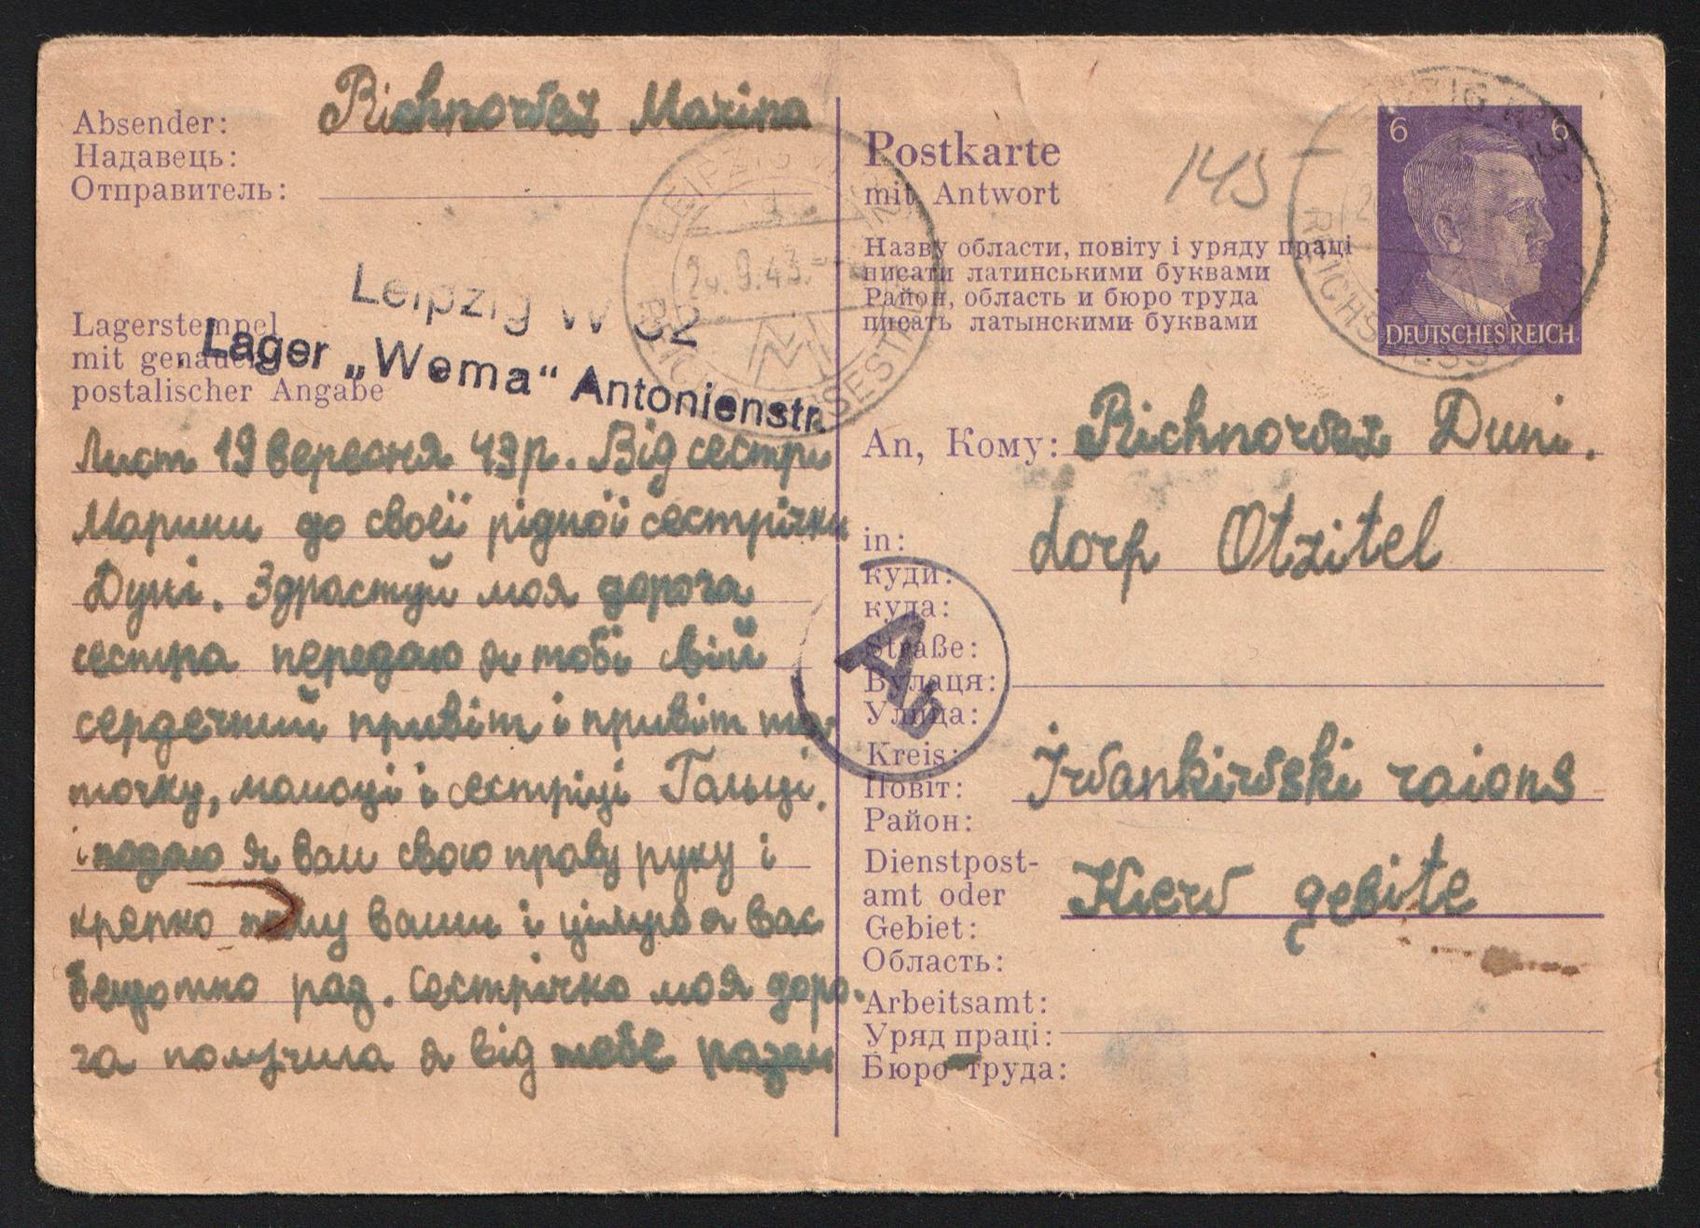 Absender:
Надавець:
Отправитель:
Richnorvez Marina
Leipzig W 32
Lager „Wema“ Antonienstr.
Lagerstempel
mit genauer
postalischer Angabe
LEIPZIG W
9.43.
REICHSMESSESTADT
Лист 19 вересня 43р. Від сестри
Марини до своєї рідної сестрічки
Дуні. Здрастуй моя дорога
сестра передаю я тобі свій
сердечний привіт і привіт та-
точку, мамоці і сестріці Гальці.
і подаю я вам свою праву руку і
крепко жму вашу і цілую я вас
бещотно раз. Сестрічко моя доро-
га получила я від тебе разом
Postkarte
mit Antwort
145
Назву области, повіту і уряду праці
писати латинськими буквами
Район, область и бюро труда
писать латынскими буквами
6 6
DEUTSCHES REICH
An, Кому: Richnorvez Duni.
in:
куди:
куда:
dorf Otzitel
Straße:
Вулаця:
Улица:
Ab
Kreis:
Повіт:
Район:
Irvankirvski raions
Dienstpost-
amt oder
Gebiet:
Область:
Kierv gebite
Arbeitsamt:
Уряд праці:
Бюро труда: